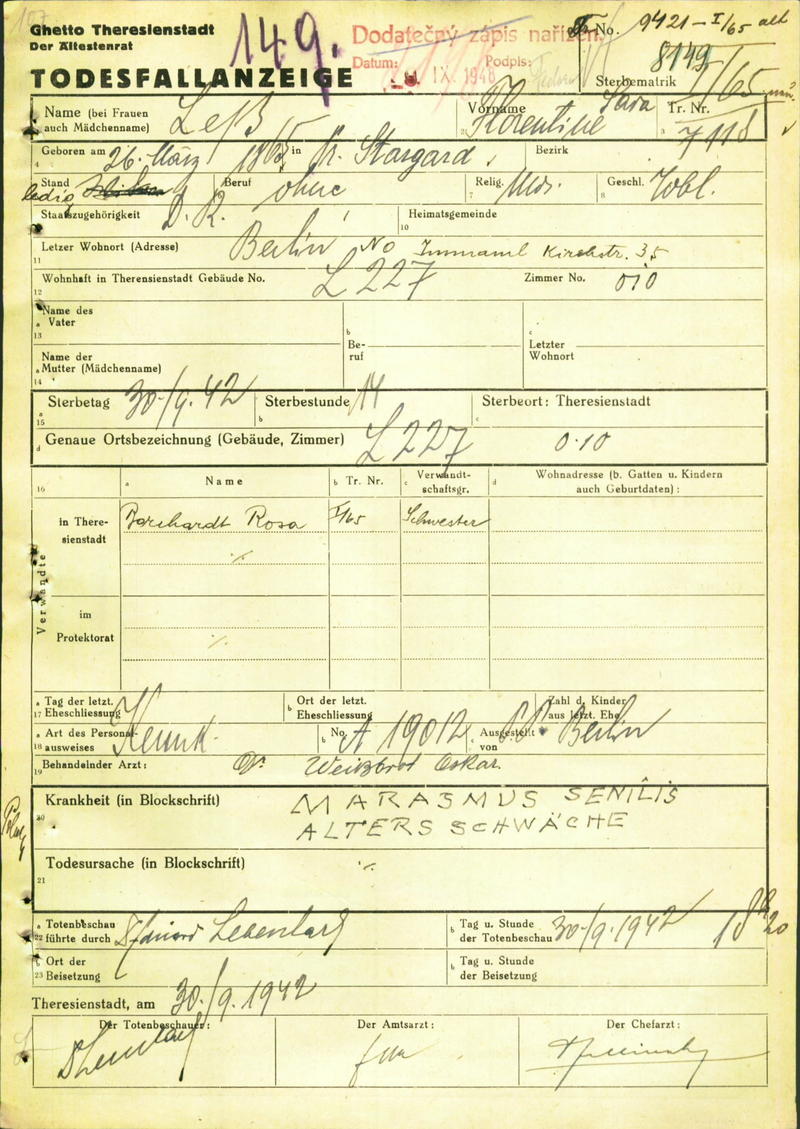 Ghetto Theresienstadt
Der Ältestenrat
149.
Dodatečný zápis nařízen
Datum: IX. 1948 Podpis:
No. 9421-I/65 alt
8149
TODESFALLANZEIGE
Sterbematrik I/65
Name (bei Frauen auch Mädchenname) Leß
Vorname Florentine Sara
Tr. Nr. 7118
Geboren am 26. März in Pr. Stargard Bezirk
Stand ledig Beruf ohne Relig. Mos. Geschl. Wbl.
Staatszugehörigkeit D. R. Heimatsgemeinde
Letzer Wohnort (Adresse) Berlin No Immanuel Kirchstr. 35
Wohnhaft in Theresienstadt Gebäude No. L 227 Zimmer No. 010
Name des Vater
Beruf
Letzter Wohnort
Name der Mutter (Mädchenname)
Sterbetag 30./9. 42 Sterbestunde 14 Sterbeort: Theresienstadt
Genaue Ortsbezeichnung (Gebäude, Zimmer) L 227 0·10
Name Tr. Nr. Verwandtschaftsgr. Wohnadresse (b. Gatten u. Kindern auch Geburtdaten) :
Verwandte
in Theresienstadt Borchardt Rosa I/65 Schwester
im Protektorat
Tag der letzt. Eheschliessung
Ort der letzt. Eheschliessung
Zahl d. Kinder aus letzt. Ehe
Art des Personalausweises Kennk. No. A 19012 Ausgestellt von Berlin
Behandelnder Arzt: Dr. Weißbrot Oskar.
Krankheit (in Blockschrift) MARASMUS SENILIS
ALTERSSCHWÄCHE
Todesursache (in Blockschrift)
Totenbeschau führte durch Tag u. Stunde der Totenbeschau 30./9. 1942 18 h 20
Ort der Beisetzung
Tag u. Stunde der Beisetzung
Theresienstadt, am 30./9. 1942
Der Totenbeschauer: Der Amtsarzt: Der Chefarzt: